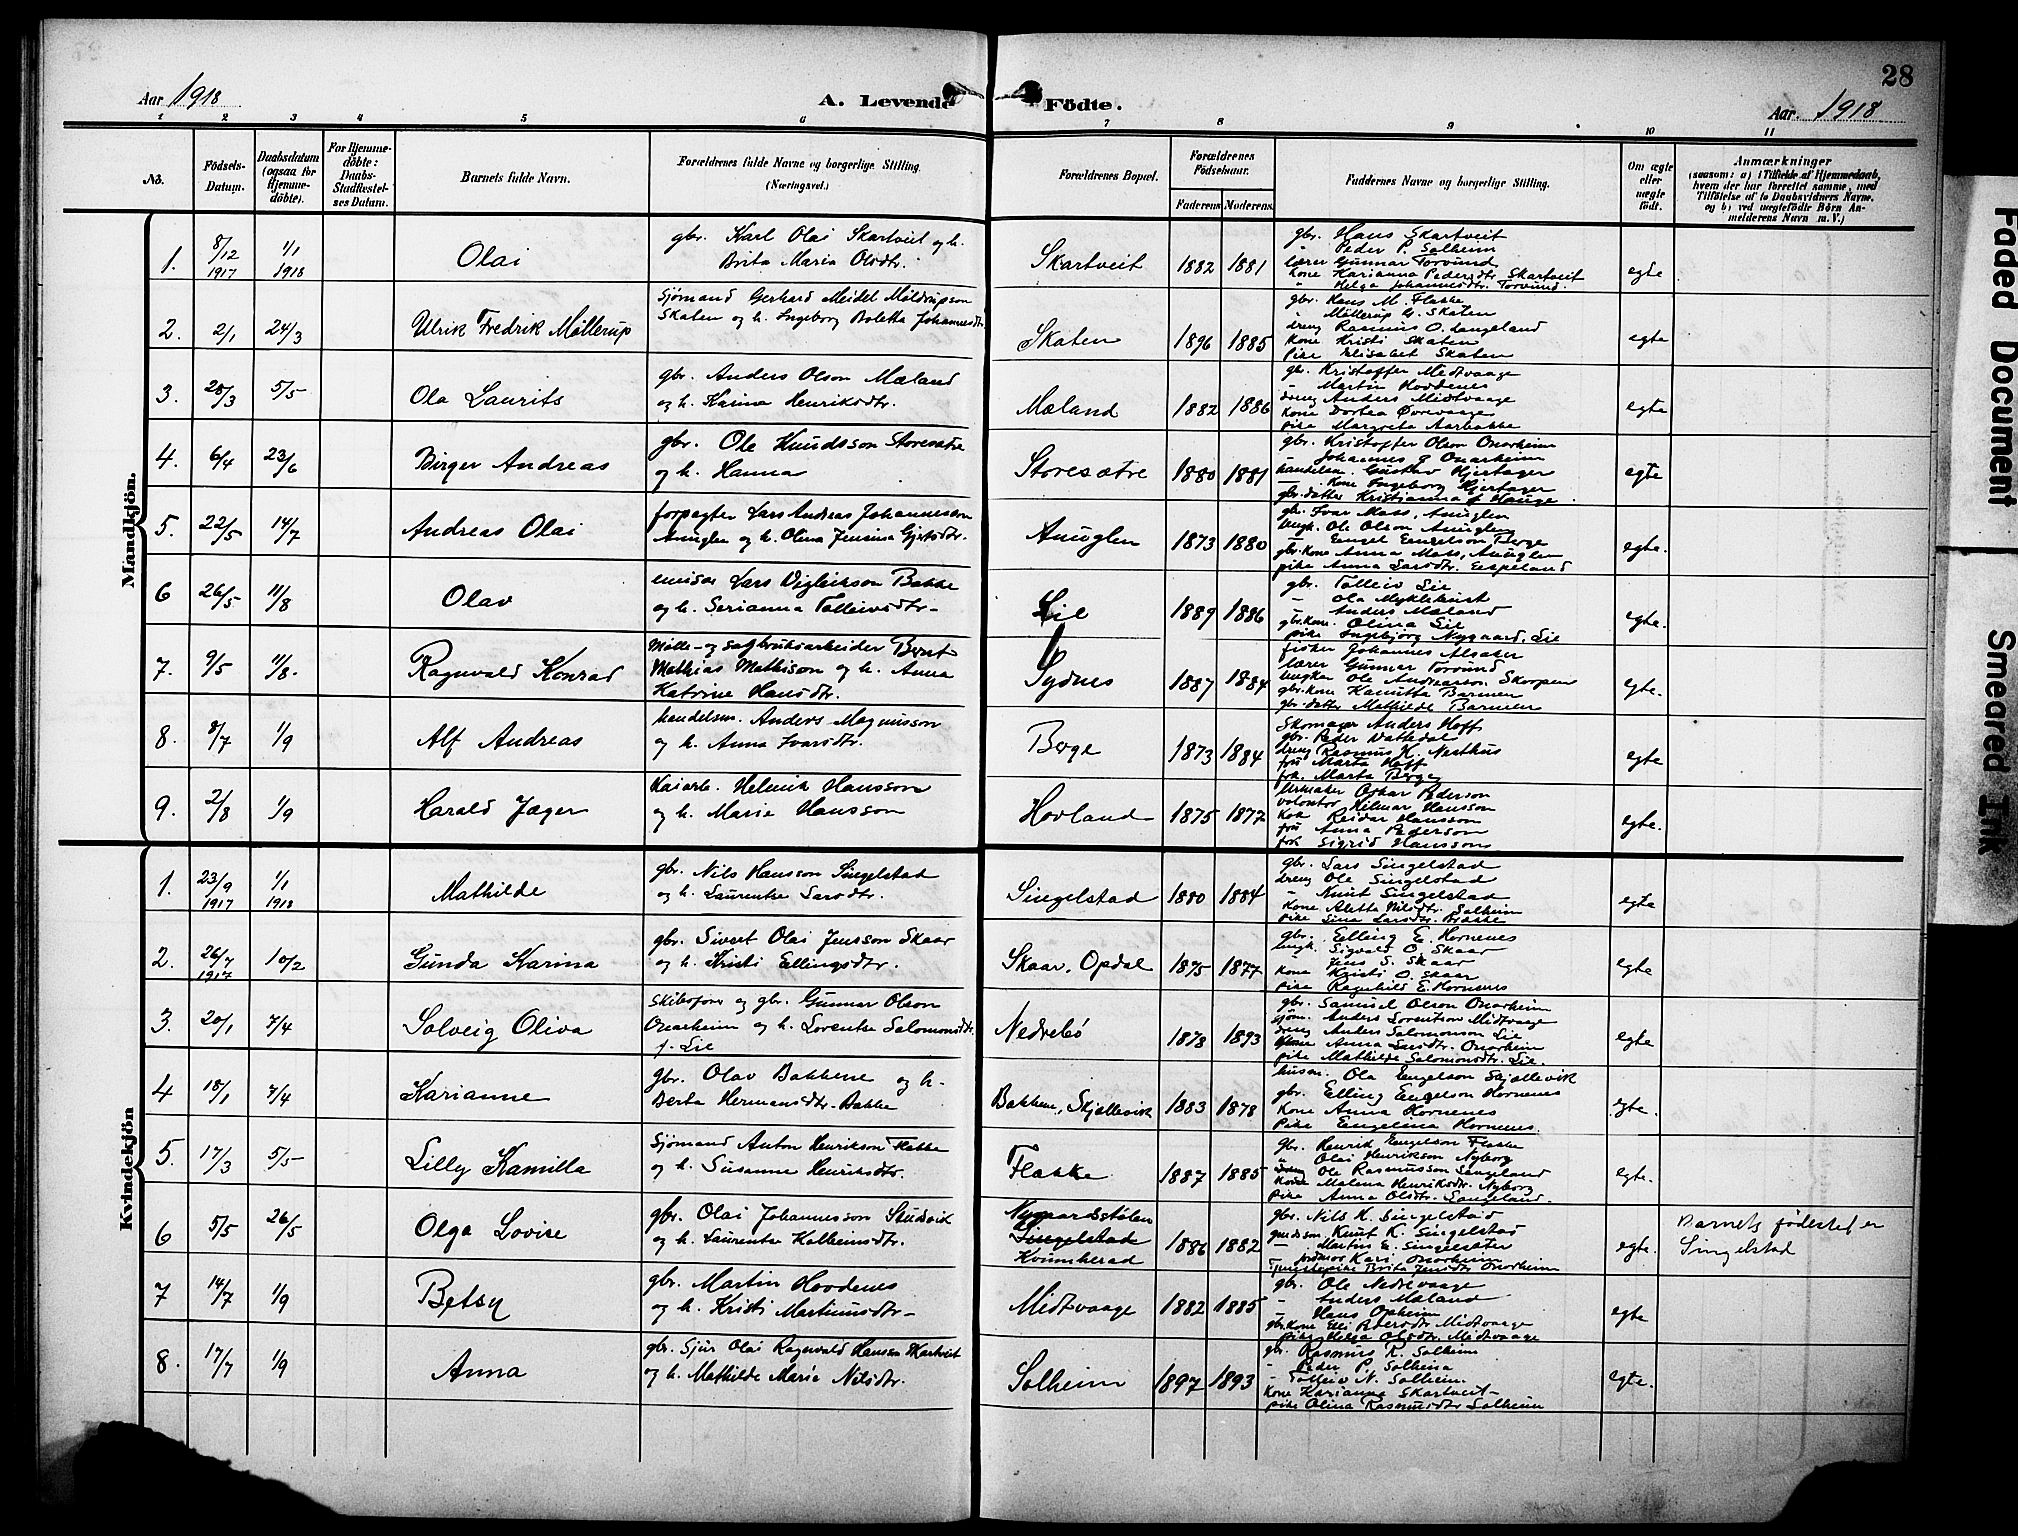 28
Aar 1918
A. Levende Födte.
Aar 1918
1 2 3 4 5 6 7 8 9 10 11
No.
Födsels-Datum.
Daabsdatum (ogsaa for Hjemme-döbte).
For Hjemme-döbte: Daabs-Stadfæstel-ses Datum.
Barnets fulde Navn.
Forældrenes fulde Navne og borgerlige Stilling.
(Næringsvei.)
Forældrenes Bopæl.
Forældrenes Födselsaar.
Faderens Moderens
Faddernes Navne og borgerlige Stilling.
Om ægte eller uægte födt.
Anmærkninger
(saasom: a) i Tilfælde af Hjemmedaab,
hvem der har forrettet samme, med
Tilföielse af to Daabsvidners Navne,
og b) ved uægtefödte Börn An-
melderens Navn m. V.)
Mandkjön.
1. 8/12 1917 1/1 1918 Olai
gbr. Karl Olai Skartveit og h.
Brita Maria Olsdtr.
Skartveit 1882 1881
gbr. Hans Skartveit
" Peder P. Solheim
lærer Gunnar Torvund
kone Karianna Pedersdtr. Skartveit
" Helga Johannesdtr. Torvund.
egte
2. 2/1 24/3 Ulrik Fredrik Möllerup
Sjömand Gerhard Meidel Möldrupson
Skaten og h. Ingeborg Boletta Johannesdtr
Skaten 1896 1885
gbr. Hans M. Flakke
" Möllerup G. Skaten
dreng Rasmus O. Langeland
kone Kristi Skaten
pike Elisabet Skaten
egte
3. 28/3 5/5 Ola Laurits
gbr. Anders Olson Mæland
og h. Karina Henriksdtr.
Mæland 1882 1886
gbr. Kristoffer Midtvaage
" Martin Hovdenes
dreng Anders Midtvaage
kone Dortea Övrevaage
pike Margreta Aarbakke
egte
4. 6/4 23/6 Birger Andreas
gbr. Ole Knudsson Storesætre
og h. Hanna
Storesætre 1880 1881
gbr. Kristoffer Olson Onarheim
- Johannes J Onarheim
handelsm. Gustav Hjertager
- kone Ingeborg Hjertager
gbr. datter Kristianna J Hauge.
egte
5. 22/5 14/7 Andreas Olai
forpagter Lars Andreas Johannesson
Anuglen og h. Olina Jensina Gjertsdtr.
Anuglen 1873 1880
gbr. Ivar Mass, Anuglen
Ungk. Ole Olson Anuglen
- Engel Engelson Berge
gbr. kone Anna Mass, Anuglen
pike Anna Larsdtr. Espeland
egte.
6 26/5 11/8 Olav
emisær Lars Vigleikson Bakke
og h. Serianna Tolleivsdtr-
Lie 1889 1886
gbr. Tolleiv Lie
- Ola Myklekvist
- Anders Mæland
gbr. kone. Olina Lie
pike Ingebjørg Nygaard, Lie
egte.
7. 9/5 11/8. Ragnvald Konrad
Mölle- og sagbruksarbeider Bernt
Mathias Mathison og h. Anna
Katrine Hansdtr.
Sydnes 1887 1884
fisker Johannes Alsaker
lærer Gunnar Torvund
Ungkar Ole Andreasson Skorpen
gbr. kone Hanitta Barmen
gbr. datter Mathilde Barmen
egte.
8. 8/7 1/9 Alf Andreas
handelsm. Anders Magnusson
og h. Anna Ivarsdtr.
Berge 1873 1884
Skomager Anders Hoff
gbr. Peder Vatledal
dreng Rasmus K. Nesthus
fru Marta Hoff
frk. Marta Berge
egte
9. 2/8 1/9 Harald Jæger
Kaiarb. Helmik Hansson
og h. Marie Hansson
Hovland 1875 1877
Urmaker Oskar Pederson
volontör Hilmar Hansson
Kok Reidar Hansson
fru Anna Pederson
frk Sigrid Hansson
egte.
Kvindekjön
1. 23/9 1917 1/1 1918 Mathilde
gbr. Nils Hansson Singelstad
og h. Laurentse Larsdtr.
Singelstad 1880 1884
gbr. Lars Singelstad
dreng Ole Singelstad
- Knut Singelstad
kone Aletta Nilsdtr. Solheim
pike Sina Larsdtr. Brække
egte
2. 26/7 1917 10/2 Gunda Karina
gbr. Sivert Olai Jensson Skaar
og h. Kristi Ellingsdtr.
Skaar, Opdal 1875 1877
gbr. Elling E. Hornenes
Ungk. Sigvald O. Skaar
Jens S. Skaar
kone Kristi O. Skaar
pike Ragnhild E. Hornenes
egte
3. 20/1 7/4 Solveig Oliva
Skibsförer og gbr. Gunnar Olson
Onarheim og h. Lorentse Salomonsdtr.
f. Lie
Nedrebö 1878 1893
gbr. Samuel Olson Onarheim
sjöm. Anders Lorentson Midtvaage
dreng Anders Salomonson Lie
kone Anna Larsdtr. Onarheim
pike Mathilde Salomonsdtr. Lie.
egte
4 18/1 7/4 Karianne
gbr. Olav Bakkene og h.
Berta Hermansdtr. Bakke
Bakkene, Skjellevik 1883 1878
husm. Ola Engelson Skjellevik
gbr. Elling Engelson Hornenes
kone Anna Hornenes
pike Engelina Hornenes.
egte.
5. 17/3 5/5 Lilly Kamilla
Sjömand Anton Henrikson Flakke
og h. Susanne Henriksdtr.
Flakke 1887 1885
gbr. Henrik Engelson Flakke
" Olai Henrikson Nyborg
dreng Ole Rasmusson Langeland
kone Malena Henriksdtr. Nyborg
pike Anna Olsdtr. Langeland.
egte.
6 5/5 26/5 Olga Lovise
gbr. Olai Johannesson Studsvik
og h. Laurentse Kolbeinsdtr.
Nygaardsstölen
Singelstad
Kvinnherad 1886 1882
gbr. Nils H. Singelstad
gaardsön Knut K. Singelstad
- Martin E. Singelsæter
jordmor Kari Onarheim
Tjenestepike Brita Jensdtr Onarheim
egte.
Barnets födested er
Singelstad
7 14/7 1/9 Betsy
gbr. Martin Hovdenes
og h. Kristi Martinusdtr-
Midtvaage 1882 1885
gbr. Ole Nedrevaage
- Anders Mæland
- Hans Opheim
gbr. kone Elli Pedersdtr Midtvaage
pike Helga Olsdtr. Midtvaage
egte
8. 17/7 1/9 Anna
gbr. Sjur Olai Ragnvald Hansson Skartveit
og h. Mathilde Marie Nilsdtr.
Solheim 1897 1893
gbr. Rasmus R. Solheim
- Peder P. Solheim
- Tolleiv N. Solheim.
kone Karianna Skartveit-
pike Olina Rasmusdtr Solheim
egte.
Faded Document
Smeared Ink